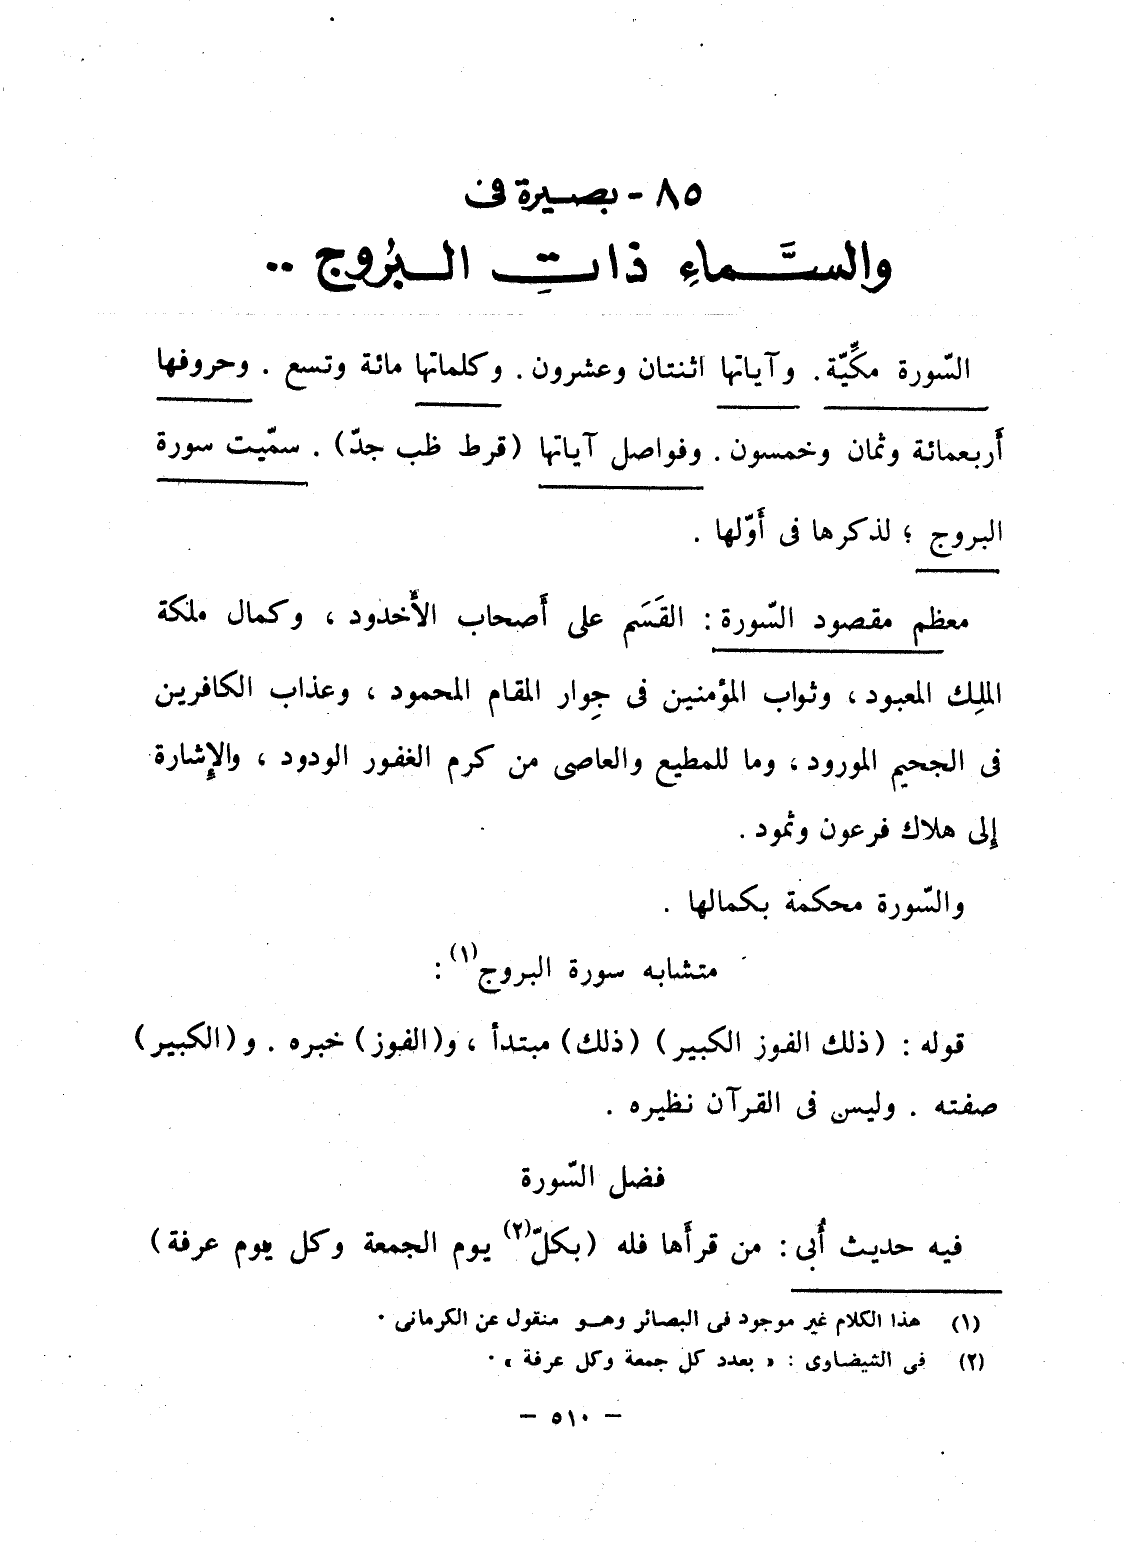 ٨٥ - بصيرة فى
والسَّماءِ ذاتِ البُروج ..
السّورة مكِّيّة. وآياتها اثنتان وعشرون. وكلماتها مائة وتسع . وحروفها
أَربعمائة وثمان وخمسون . وفواصل آياتها (قرط ظب جدّ) . سمّيت سورة
البروج ؛ لذكرها فى أَوّلها .
معظم مقصود السّورة : القَسَم على أَصحاب الأُخدود ، وكمال ملكة
الملِك المعبود ، وثواب المؤمنين فى جِوار المقام المحمود ، وعذاب الكافرين
فى الجحيم المورود ، وما للمطيع والعاصى من كرم الغفور الودود ، والإِشارة
إِلى هلاك فرعون وثمود .
والسّورة محكمة بكمالها .
متشابه سورة البروج(١) :
قوله : (ذلك الفوز الكبير) (ذلك) مبتدأ ، و(الفوز) خبره . و(الكبير)
صفته . وليس فى القرآن نظيره .
فضل السّورة
فيه حديث أُبى : من قرأَها فله (بكلّ(٢) يوم الجمعة وكل يوم عرفة)
(١) هذا الكلام غير موجود فى البصائر وهو منقول عن الكرمانى .
(٢) فى الشيضاوى : « بعدد كل جمعة وكل عرفة » .
— ٥١٠ —